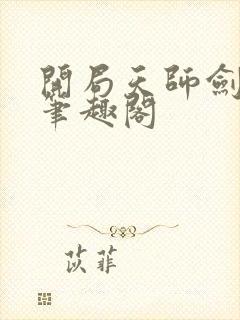 開局天師劍
筆趣閣
苡菲